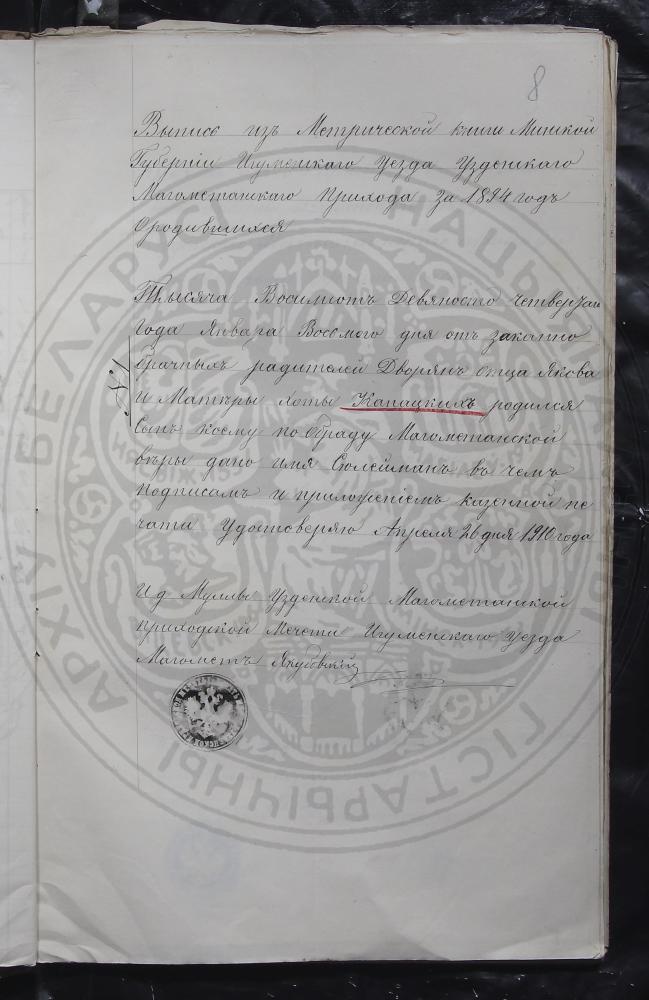 8
Выпись изъ Метрической книги Минской
Губерніи Игуменскаго уезда Узденскаго
Магометанскаго Прихода за 1894 годъ
О родившихся
№ 1
Тысяча Восемьсотъ Девяносто четвертаго
года Января Восьмого дня отъ законно
брачныхъ радителей Дворянъ отца Якова
и Матѣры Хоты Капацкихъ родился
сынъ коему по обряду Магометанской
вѣры дано имя Сюлейманъ въ чемъ
подписамъ и приложеніемъ казенной пе
чати удостоверяю Апреля 26 дня 1910 года
И д Муллы Узденской Магометанской
приходской Мечети Игуменскаго уезда
Магометъ Якубовскій
НАЦЫЯНАЛЬНЫ
ГІСТАРЫЧНЫ
АРХІЎ БЕЛАРУСІ